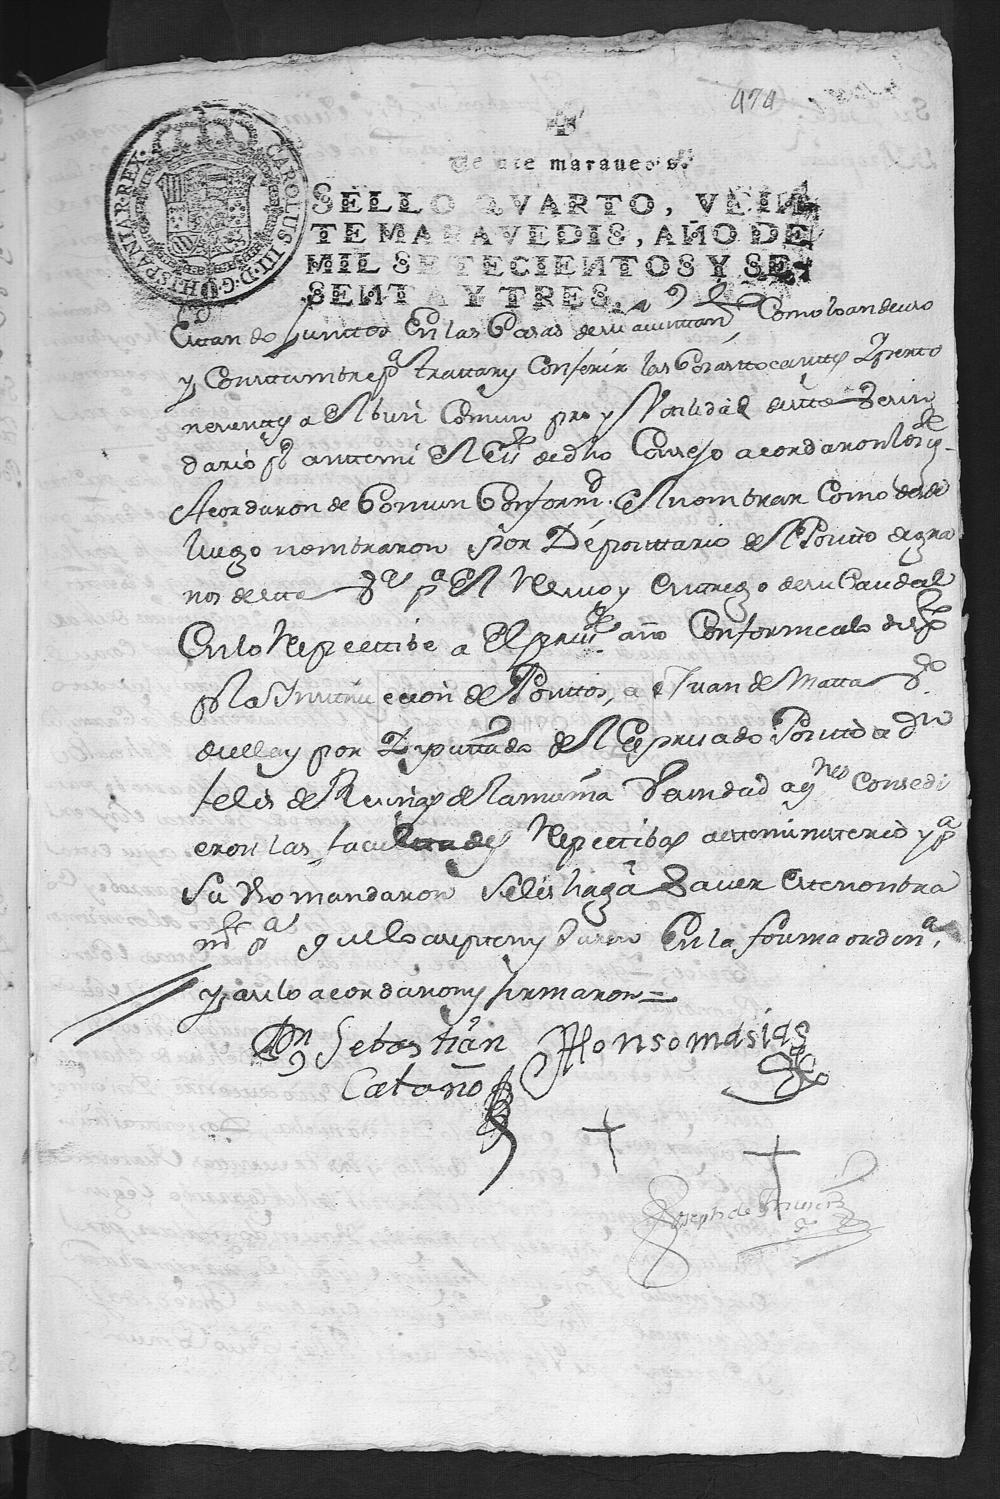 474
CAROLUS III D G HISPANIAR REX
Veinte maravedis.
SELLO QVARTO, VEIN
TE MARAVEDIS, AÑO DE
MIL SETECIENTOS Y SE
SENTA Y TRES.
Estando Junttos En las Casas de su aiuntam Como lo an de uso
y Costtumbre pª trattar y Conferir las Cosas ttocantts
a El buen Comun pro y Vtilidad de estta Vecin
dario pr antte mi El de dho Consejo acordaron lo sigte
Acordaron de Comun Conformd. El nombrar como desde
luego nombraron por Deposittario del Positto de gra
nos de estta Vª pª El Resivo y Enttrego de su Caudal
En lo Respecttibe a El año Conforme a lo disp
pr la Insttruccion de Posittos, a Juan de Matta Vº
de ella y por Diputtado del Expresado Positto a Dn
felis de de la misma Vecindad a qnes Consedi
eron las facultades Respecttibas a este ministerio y pª
su Vso mandaron se les haga Saver este nombra
mto pª que lo asepten y Juren En la forma ordinª,
y asi lo acordaron y firmaron =
Dn Sebasttian Alonso masias
Cataño
Joseph de